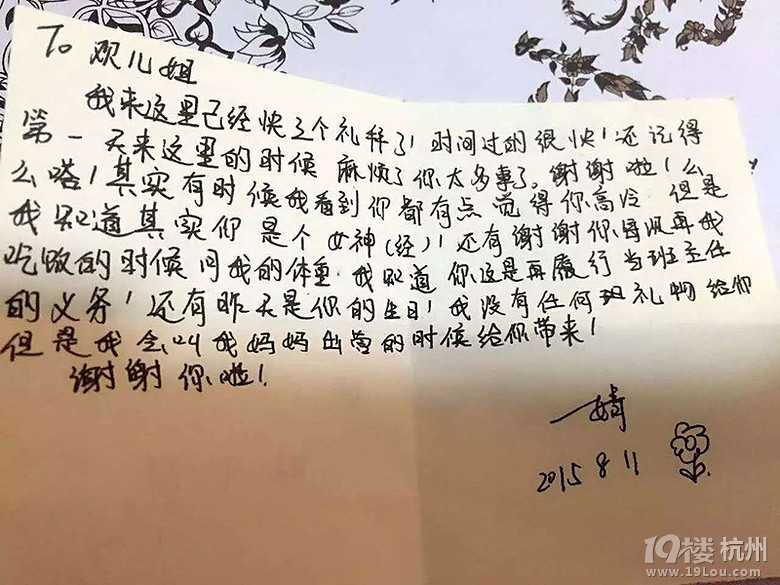 To 欢儿姐
我来这里已经快3个礼拜了!时间过的很快!还记得
第一天来这里的时候麻烦了你太多事了。谢谢啦!么
么嗒!其实有时候我看到你都有点觉得你高冷 但是
我知道其实你是个女神(经)!还有谢谢你每次再我
吃饭的时候问我的体重 我知道你这是再履行当班主任
的义务!还有昨天是你的生日!我没有任何礼物给你
但是我会叫我妈妈出营的时候给你带来!
谢谢你啦!
一婧
2015 8 11
19楼 杭州
www.19Lou.com